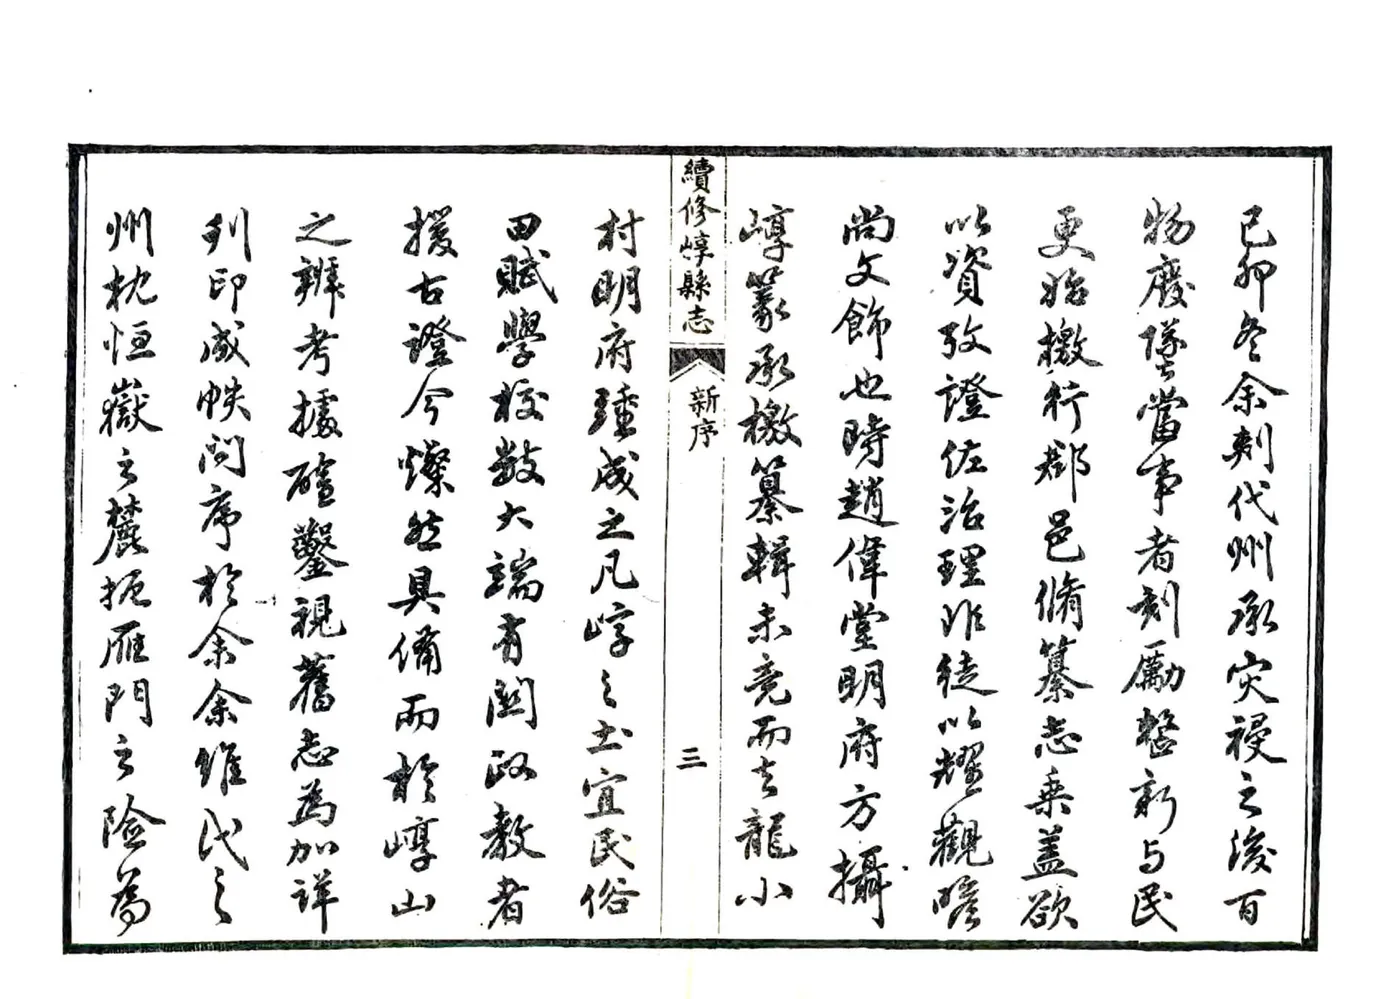 己卯冬余刺代州承灾祲之後百
物廢墜當事者刻勵整新与民
更始檄行郡邑脩纂志乘盖欲
以資攷證佐治理非徒以耀觀瞻
尚文飾也時趙偉堂明府方攝
崞篆承檄纂輯未竟而去龍小
續修崞縣志
新序
三
村明府踵成之凡崞之土宜民俗
田賦學校數大端有関政教者
援古證今燦然具備而於崞山
之辨考據確鑿視舊志為加詳
刋印成帙问序於余余維代之
州枕恒嶽之麓扼雁門之險為